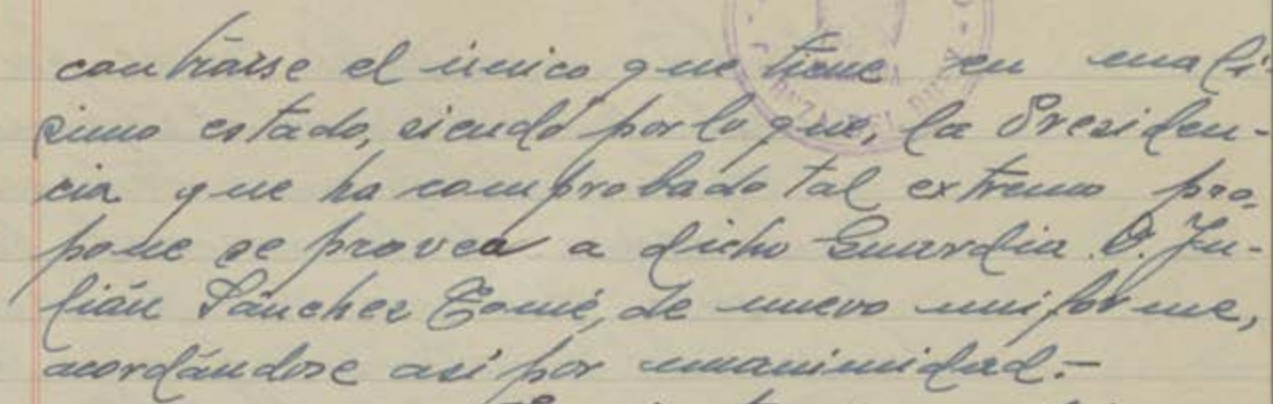 contrarse el único que tiene en malí-
simo estado, siendo por lo que, la Presiden-
cia que ha comprobado tal extremo pro-
pone se provea a dicho Guardia D. Ju-
lián Sánchez Tomé, de nuevo uniforme,
acordándose así por unanimidad.-